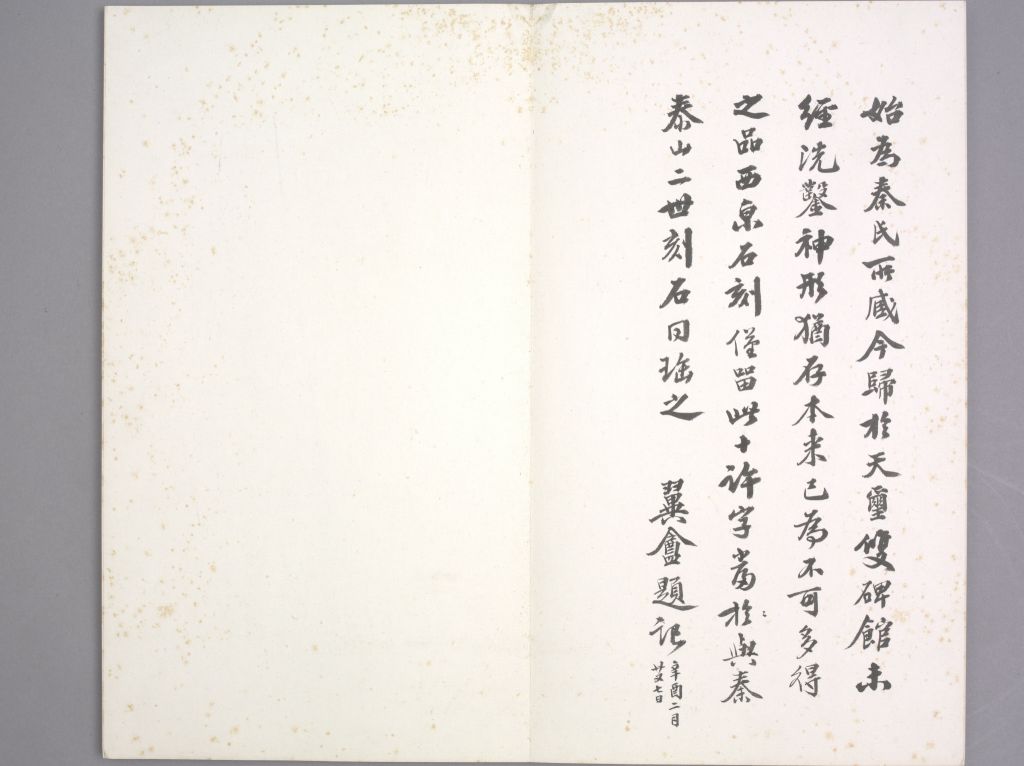 始為秦氏所藏今歸於天璽雙碑館未
經洗鑿神形猶存本来已為不可多得
之品西泉石刻僅留此十許字當於與秦
泰山二世刻石同珤之
翼盦題記
辛酉二月
廿又七日